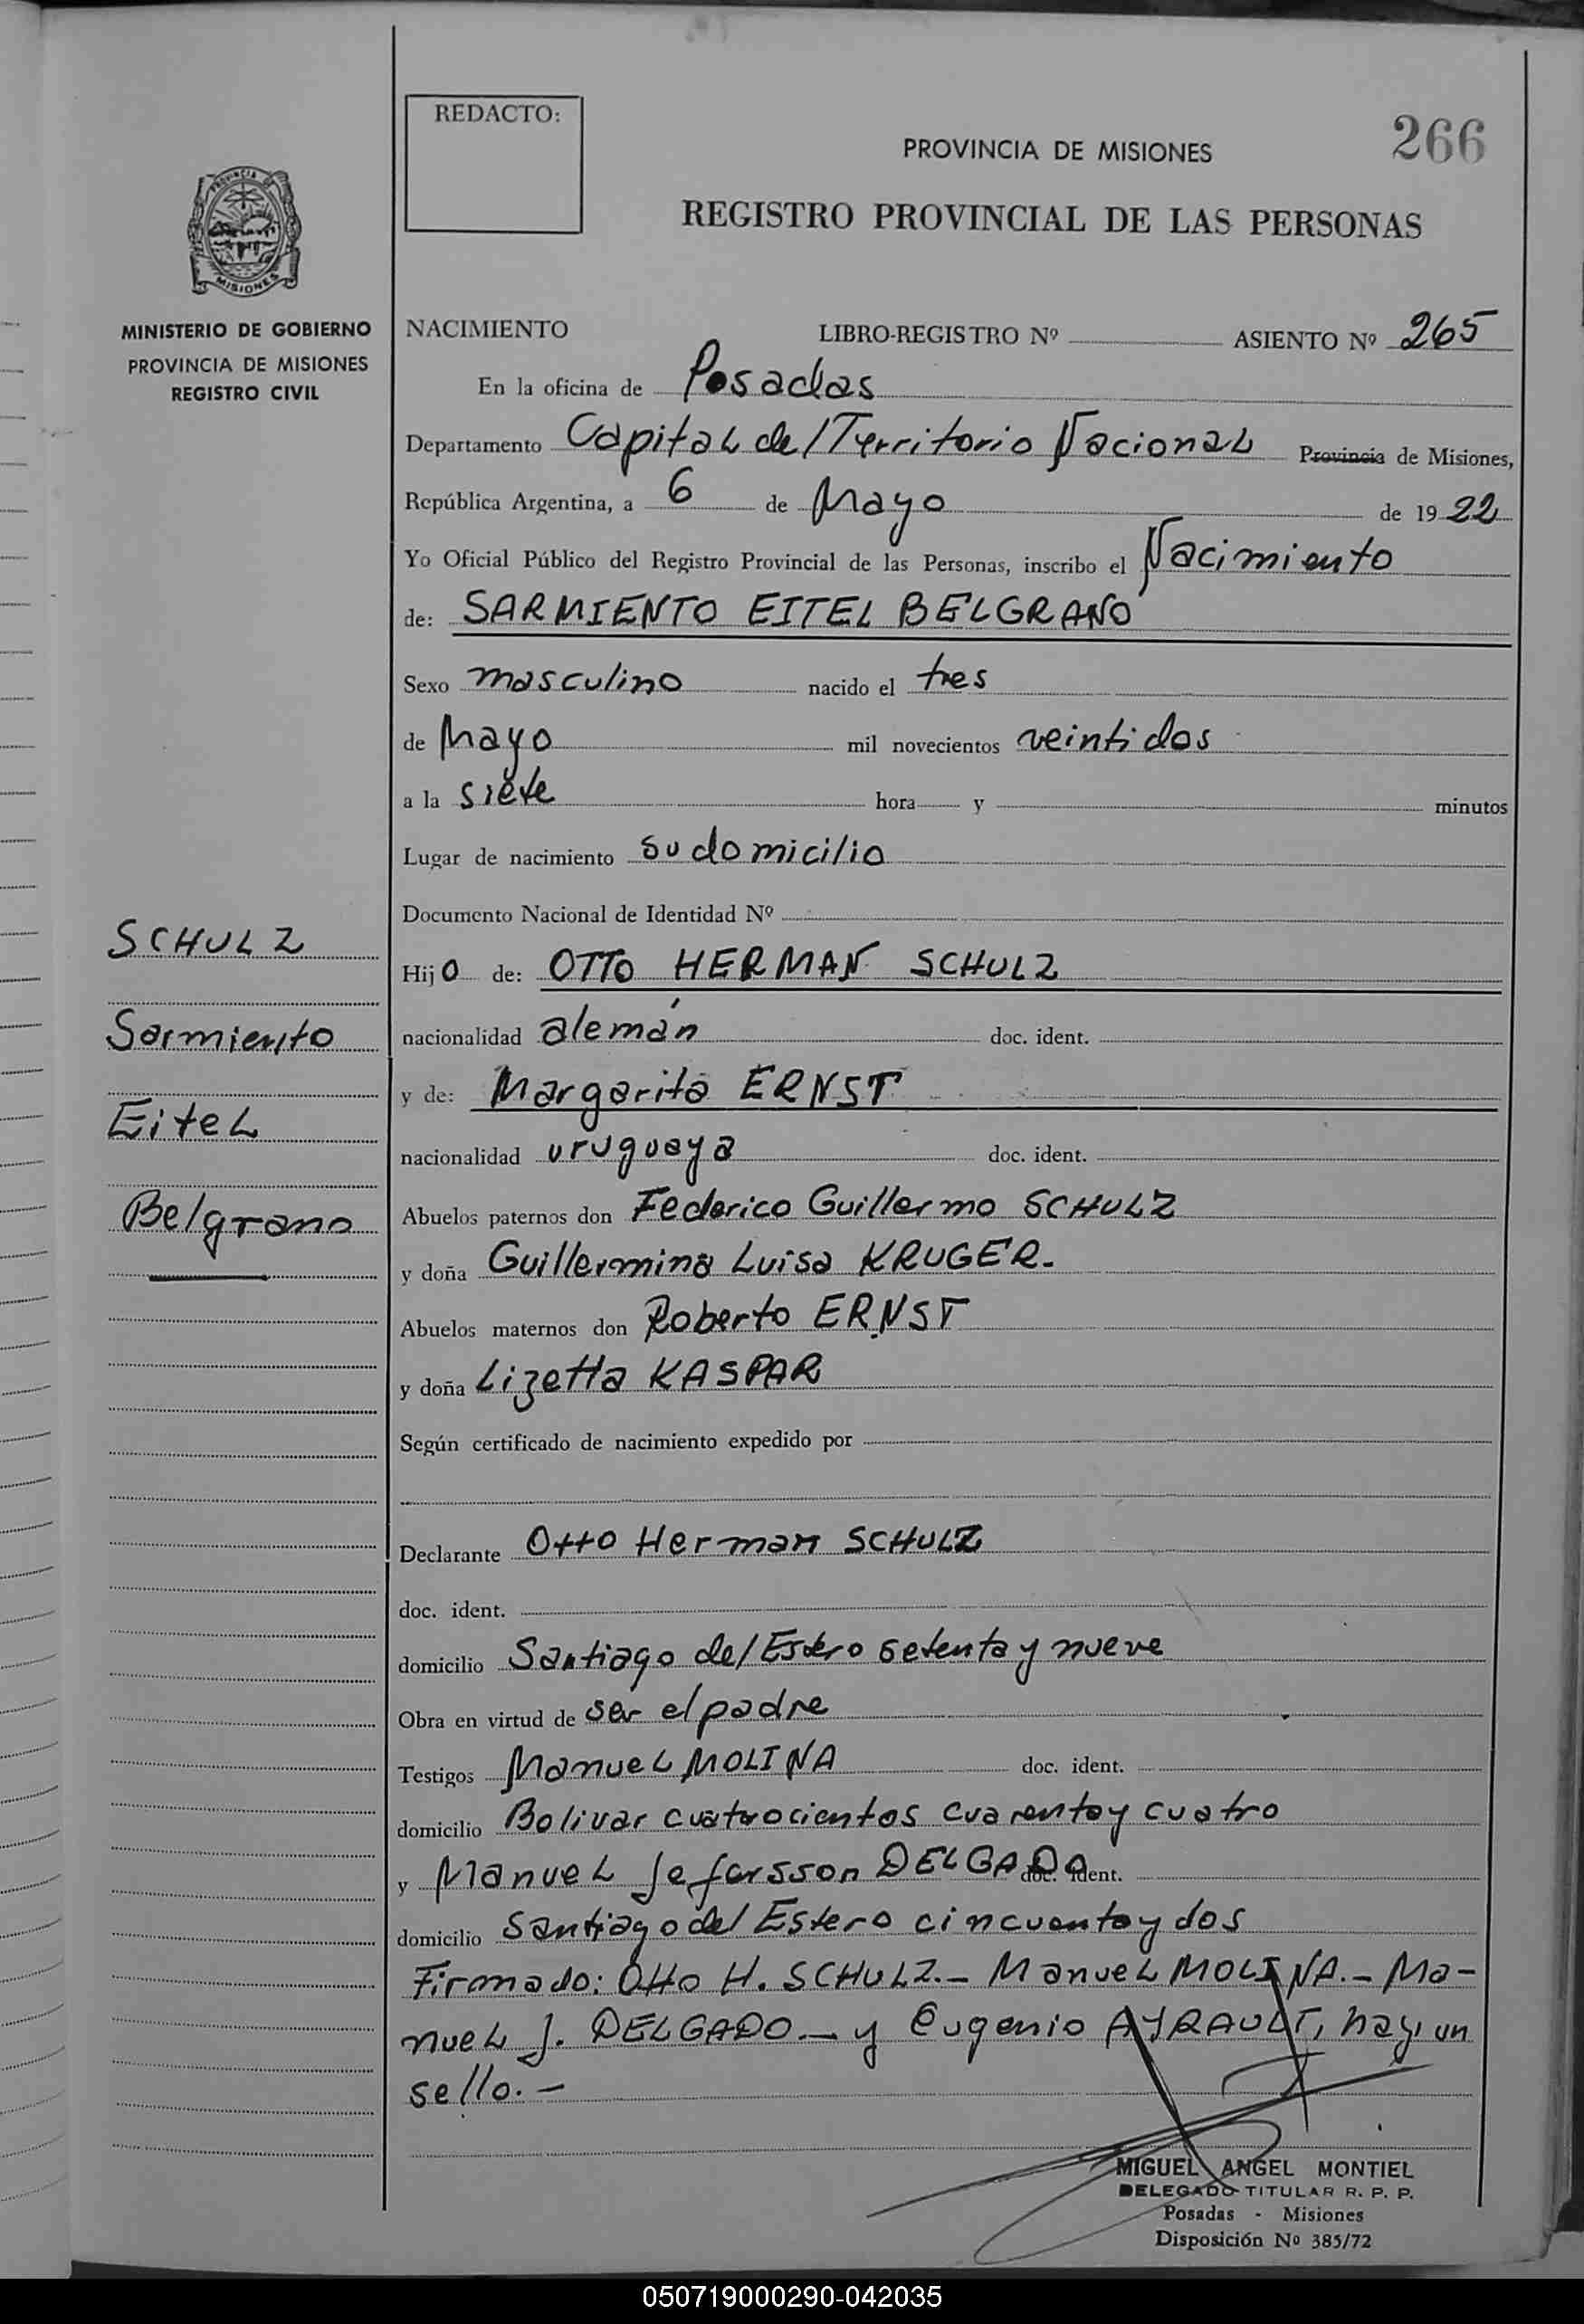 REDACTO:
266
PROVINCIA DE MISIONES
REGISTRO PROVINCIAL DE LAS PERSONAS
PROVINCIA DE
MISIONES
MINISTERIO DE GOBIERNO
PROVINCIA DE MISIONES
REGISTRO CIVIL
NACIMIENTO LIBRO-REGISTRO Nº ASIENTO Nº 265
En la oficina de Posadas
Departamento Capital del Territorio Nacional Provincia de Misiones,
República Argentina, a 6 de Mayo de 1922
Yo Oficial Público del Registro Provincial de las Personas, inscribo el Nacimiento
de: SARMIENTO EITEL BELGRANO
Sexo masculino nacido el tres
de Mayo mil novecientos veintidos
a la siete hora y minutos
Lugar de nacimiento su domicilio
Documento Nacional de Identidad Nº
SCHULZ
Sarmiento
Eitel
Belgrano
Hijo de: OTTO HERMAN SCHULZ
nacionalidad alemán doc. ident.
y de: Margarita ERNST
nacionalidad uruguaya doc. ident.
Abuelos paternos don Federico Guillermo SCHULZ
y doña Guillermina Luisa KRUGER.
Abuelos maternos don Roberto ERNST
y doña Lizetta KASPAR
Según certificado de nacimiento expedido por
Declarante Otto Herman SCHULZ
doc. ident.
domicilio Santiago del Estero setenta y nueve
Obra en virtud de ser el padre
Testigos Manuel MOLINA doc. ident.
domicilio Bolivar cuatrocientos cuarenta y cuatro
y Manuel Jefersson DELGADO doc. ident.
domicilio Santiago del Estero cincuenta y dos
Firmado: Otto H. SCHULZ.- Manuel MOLINA.- Ma-
nuel J. DELGADO.- y Eugenio AYRAULT, hay un
sello.-
MIGUEL ANGEL MONTIEL
DELEGADO TITULAR R. P. P.
Posadas - Misiones
Disposición Nº 385/72
050719000290-042035